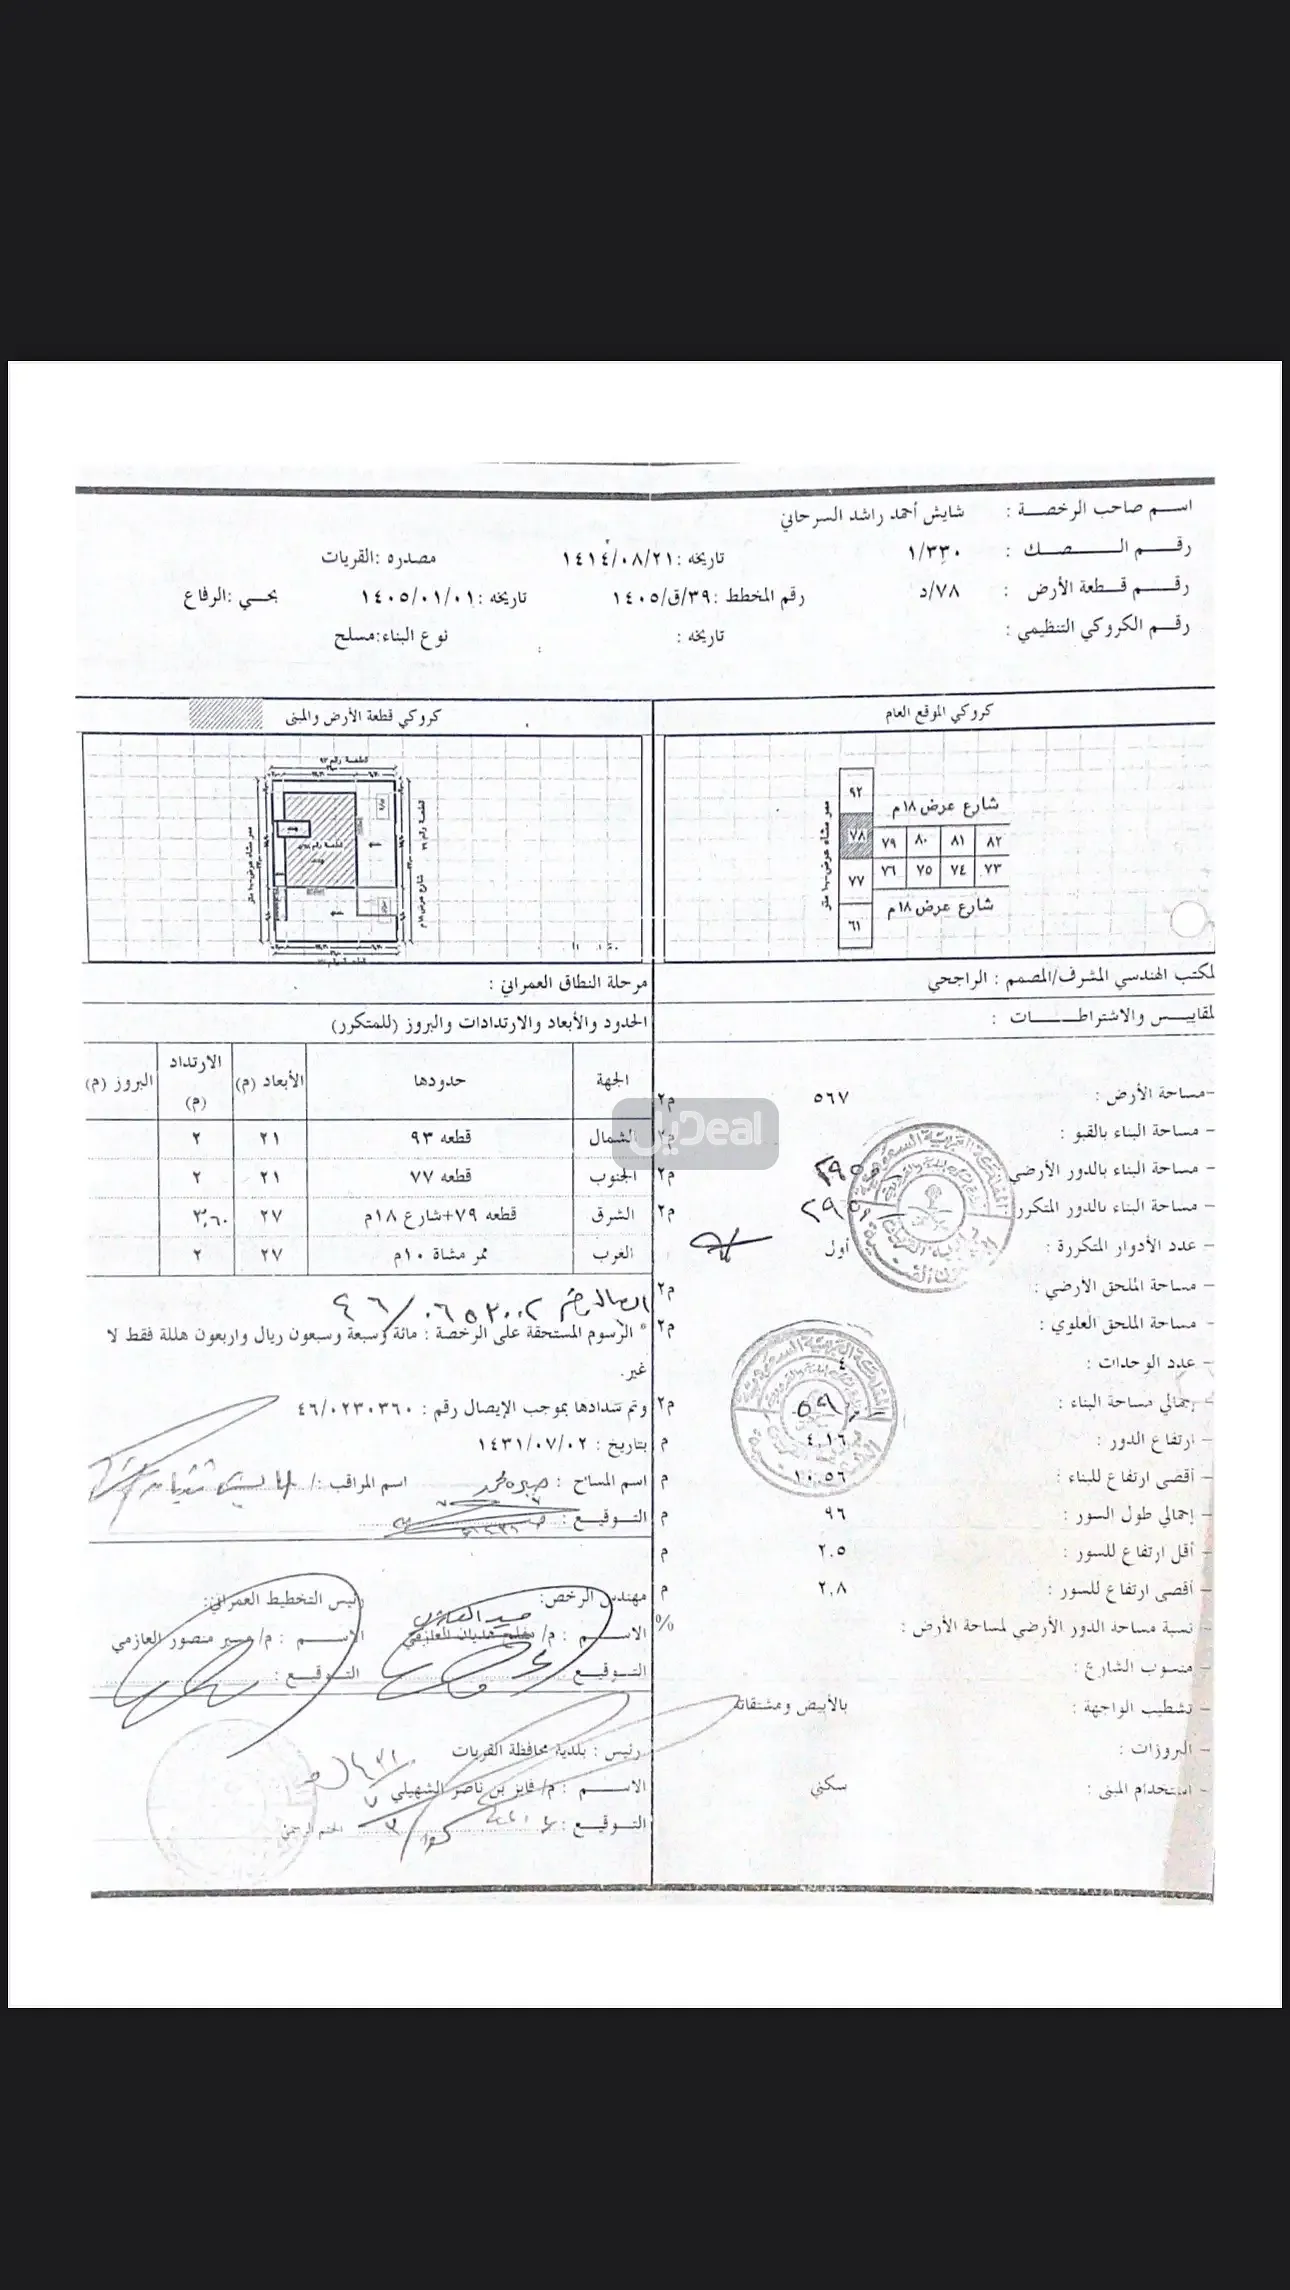 اسم صاحب الرخصة : شايش أحمد راشد السرحاني
رقم الصك : ١/٣٣٠ تاريخه : ١٤١٤/٠٨/٢١ مصدره :القريات
رقم قطعة الأرض : ٧٨/د رقم المخطط :٣٩/ق/١٤٠٥ تاريخه :١٤٠٥/٠١/٠١ بحي :الرفاع
رقم الكروكي التنظيمي : تاريخه : نوع البناء:مسلح
كروكي الموقع العام
٩٢
شارع عرض ١٨م
٧٨ ٧٩ ٨٠ ٨١ ٨٢
٧٧ ٧٦ ٧٥ ٧٤ ٧٣
شارع عرض ١٨م
٦١
ممر مشاه عرض ١٠ متر
كروكي قطعة الأرض والمبنى
قطعة رقم ٩٣
ممر مشاه عرض ١٠ متر
شارع عرض ١٨م
لمكتب الهندسي المشرف/المصمم : الراجحي
مرحلة النطاق العمراني :
لمقاييس والاشتراطات :
-مساحة الأرض : ٥٦٧ م٢
- مساحة البناء بالقبو : م٢
- مساحة البناء بالدور الأرضي م٢
- مساحة البناء بالدور المتكرر م٢
- عدد الأدوار المتكررة : أول
- مساحة الملحق الأرضي : م٢
- مساحة الملحق العلوي : م٢
- عدد الوحدات : ٤
- إجمالي مساحة البناء : م٢
- ارتفاع الدور : ٤.١٦ م
- أقصى ارتفاع للبناء : ١٠.٥٦ م
- إجمالي طول السور : ٩٦ م
- أقل ارتفاع للسور : ٢.٥ م
- أقصى ارتفاع للسور : ٢.٨ م
- نسبة مساحة الدور الأرضي لمساحة الأرض : %
- منسوب الشارع :
- تشطيب الواجهة : بالأبيض ومشتقاته
- البروزات :
- استخدام المبنى : سكني
الحدود والأبعاد والارتدادات والبروز (للمتكرر)
الجهة حدودها الأبعاد (م) الارتداد (م) البروز (م)
الشمال قطعه ٩٣ ٢١ ٢
الجنوب قطعه ٧٧ ٢١ ٢
الشرق قطعه ٧٩+شارع ١٨م ٢٧ ٣.٦٠
الغرب ممر مشاة ١٠م ٢٧ ٢
* الرسوم المستحقة على الرخصة : مائة وسبعة وسبعون ريال واربعون هللة فقط لا
غير.
وتم سدادها بموجب الإيصال رقم : ٤٦/٠٢٣٠٣٦٠
بتاريخ : ١٤٣١/٠٧/٠٢
اسم المساح : اسم المراقب :
التوقيع :
مهندس الرخص: رئيس التخطيط العمراني:
الاسم : م/ الاسم : م/ مسير منصور العازمي
التوقيع التوقيع :
رئيس : بلدية محافظة القريات
الاسم : م/ فايز بن ناصر الشهيلي
التوقيع : الختم الرسمي
ديل Deal